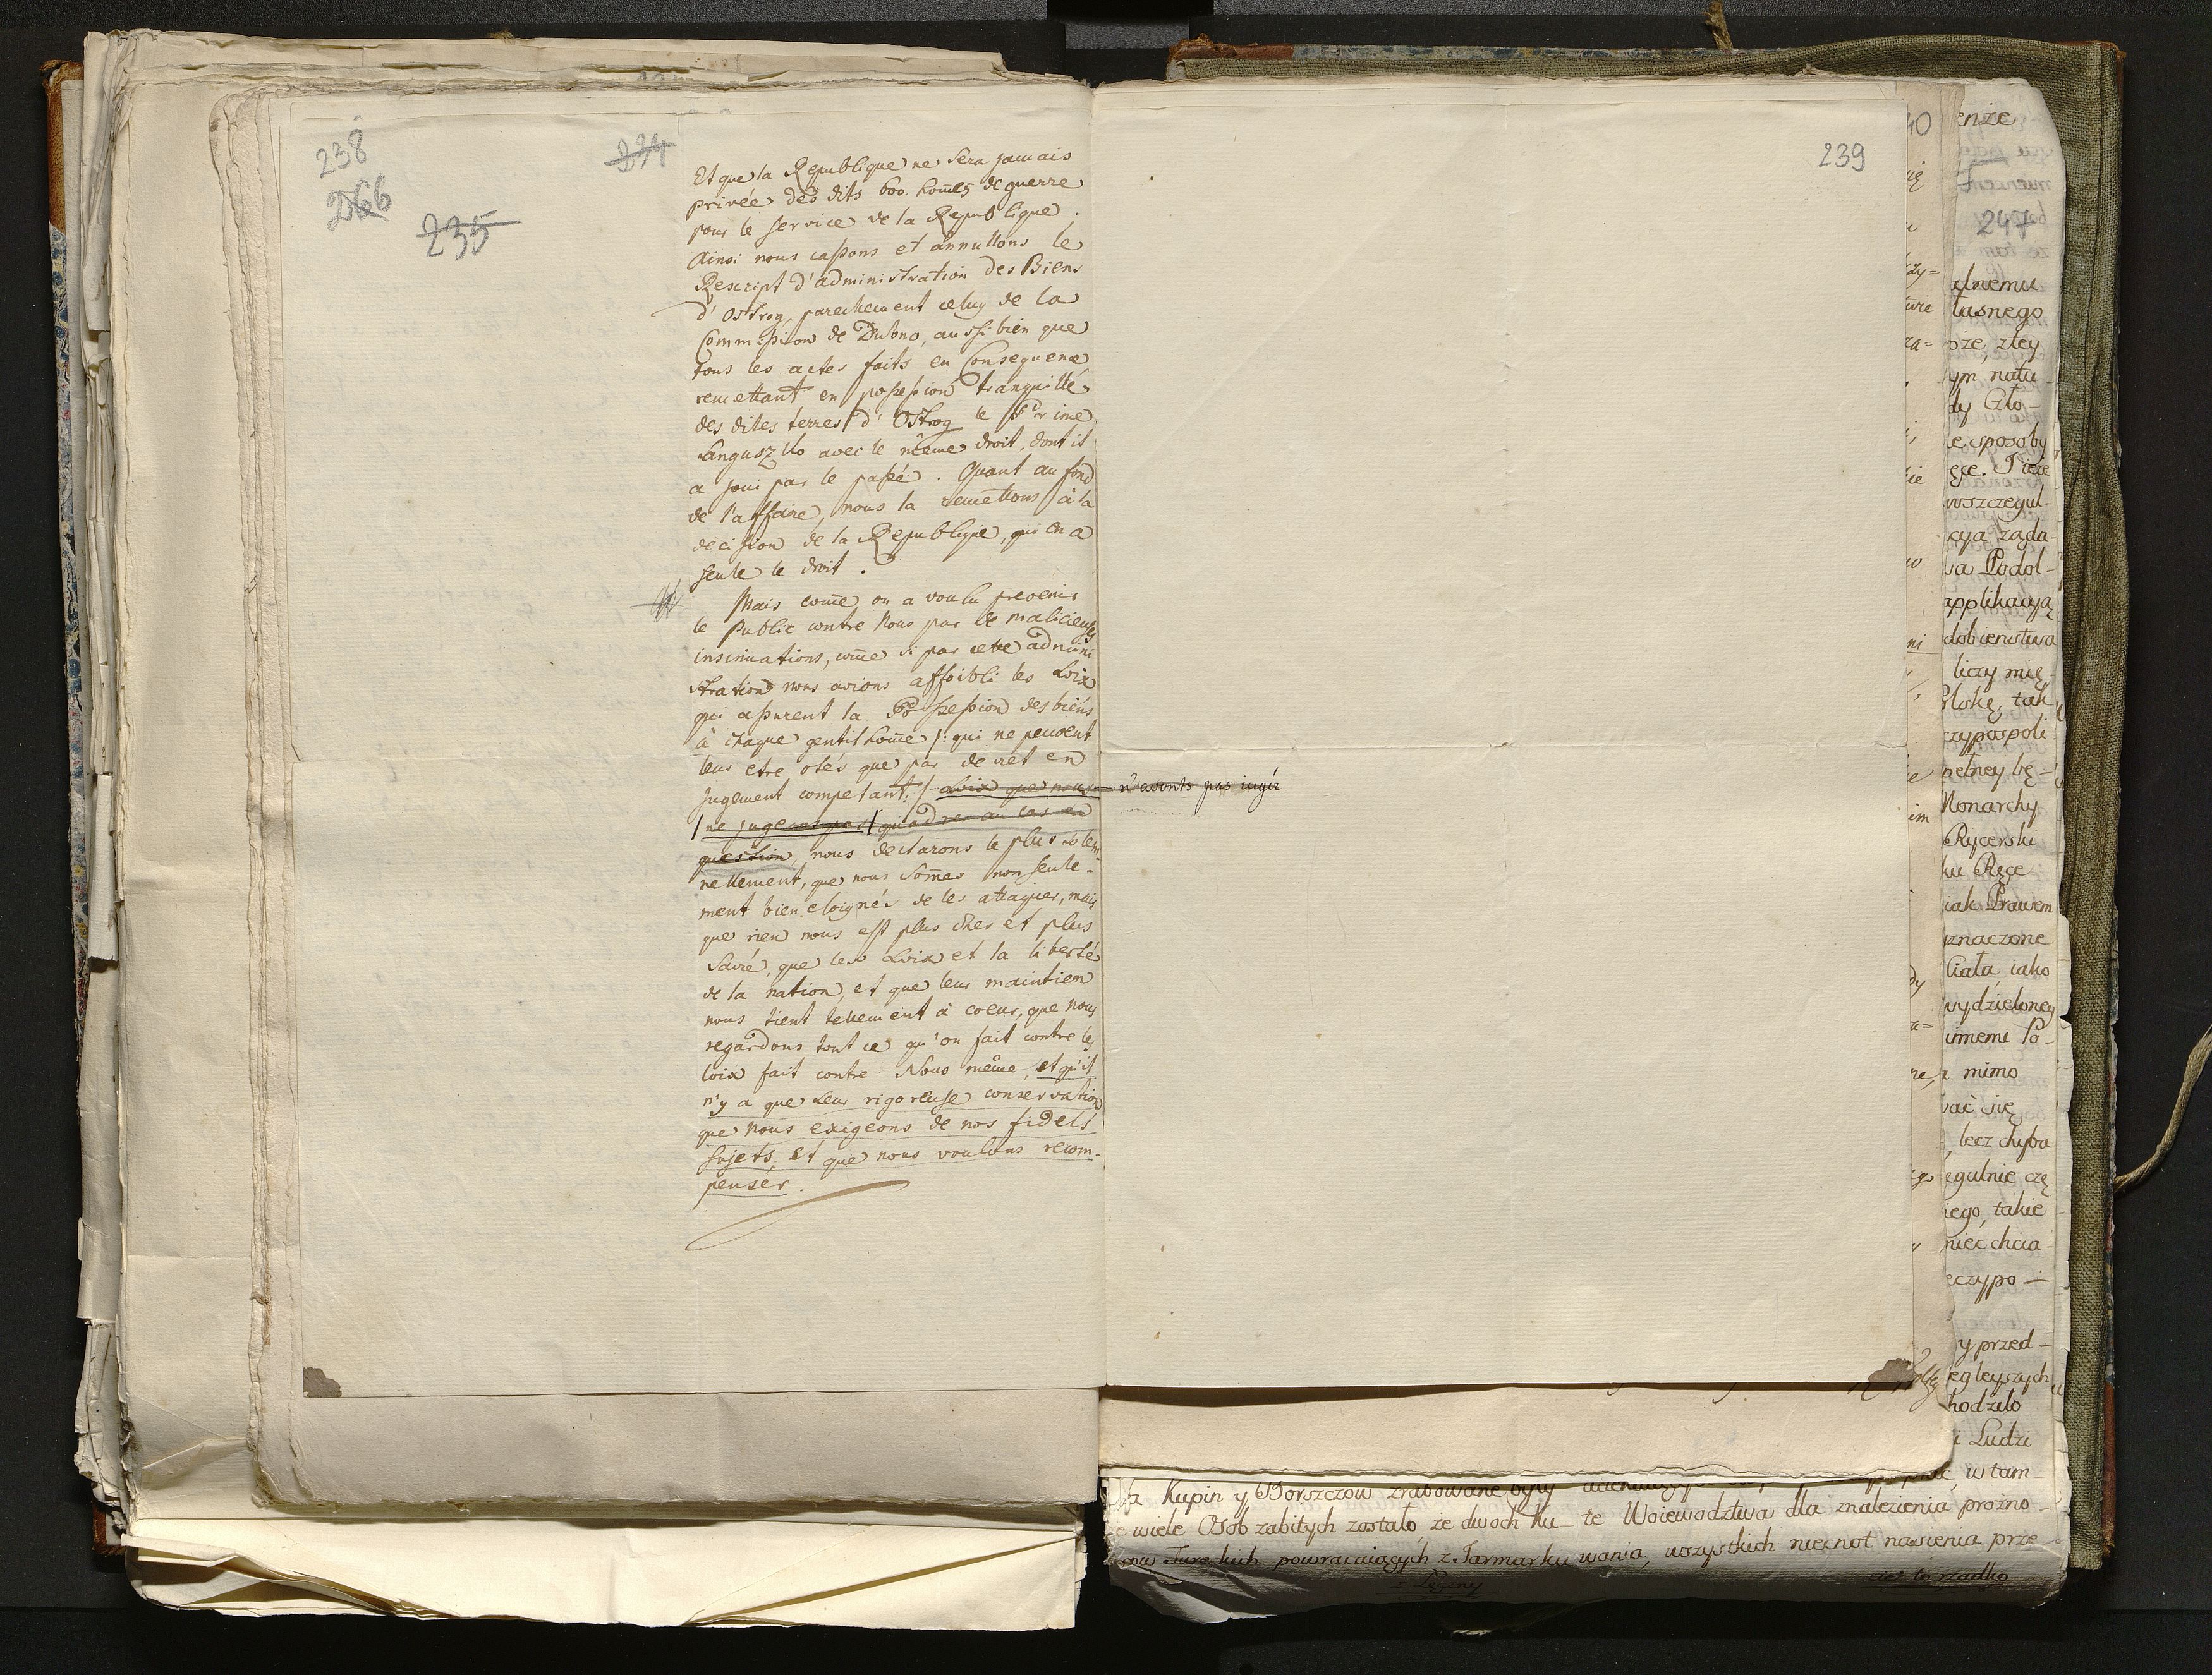 238
234
266
235
Et que la Republique ne Sera jamais
privée des dits 600. hom̃es de guerre
pour le Service de la Republique.
Ainsi nous cassons et annullons le
Rescript d'administration des Biens
d'Ostrog, pareilement celuy de la
Commission de Dubno, aussi bien que
tous les actes faits en Consequence
remettant en possession tranquille
des dites terres d'Ostrog le Prince
Sanguszko avec le même droit, dont il
a joui par le passé. Quant au fond
de l'affaire, nous la remettons à la
decision de la Republique, qui en a
seule le droit.
Mais com̃e on a voulu prevenir
le Public contre Nous par de malicieuses
insinuations, com̃e si par cette admini
stration nous avions affoibli les Loix
qui assurent la Possession des biens
à chaque gentilhom̃e /: qui ne peuvent
leur etre otés que par decret en
jugement competant: / Loix que nous n'avonts pas jugéz
/ ne jugeons pas / quadrer au cas en
question, nous declarons le plus solem-
nellement, que nous som̃es non seule-
ment bien eloignés de les attaquer, mais
que rien nous est plus cher et plus
Sacré, que les Loix et la liberté
de la nation, et que leur maintien
nous tient tellement à coeur, que nous
regardons tout ce qu'on fait contre les
loix fait contre Nous même, et qu'il
n'y a que Leur rigoreuse conservation
que nous exigeons de nos fidels
Sujets, et que nous voulons recom-
penser.
239
40
enże
247
elnemu
łasnego
oże, złey
ym natu
dy Gło-
le sposoby
ęce. Też
wszczegul-
cya żąda-
va Podol-
applikacyą
dobieństwa
liczy mię-
Polskę, tak
czypospoli
pełney bę-
Monarchy
Rycersku
ku Ręce
iak Prawem
znaczone
Ciała, iako
wydzieloney
immemi Po-
mimo
ać się
lecz chyba
egulnie czę
iego, takie
nieć chcia-
eczypo-
y przed-
egleyszych
hodziło
i Ludzi
w tam-
Kupin y Borszczow zrabowane były
e wiele Osob zabitych zostało, że dwoch Ku- te Woiewodztwa dla znalezienia prożno-
pow Tureckich powracaiących z Jarmarku wania, wszystkich niecnot nasienia prze
z Łęczny